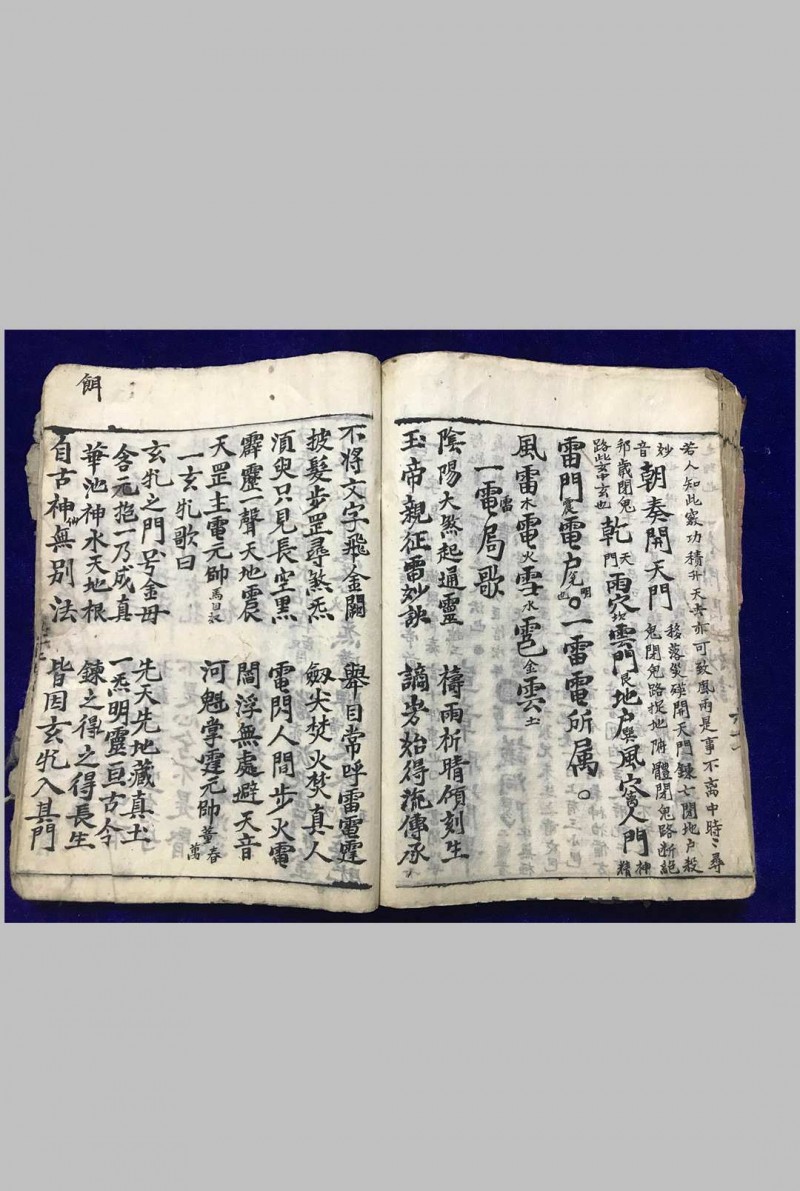 若人知此竅功積升天去亦可致風雨是事不离中時〻尋
妙音
朝奏開天門
移落災碟開天門錬亡閉地户殺
鬼閉鬼路捉地府體閉鬼路断絕
邪歳閉鬼
路此玄中玄也
乾天門雨穴坎雲門艮地户巽風穴离人門神精
雷門震電户兑也明。一雷電所属。
風雷水電火雪水雹金雲土
一雷電局歌
陰陽大煞起通靈 檮雨祈晴傾刻生
玉帝親征雷妙訣 謫步始得流傳承
不將文字飛金闕 舉目常呼雷電霆
披髮步罡尋煞炁 劔尖焚火焚真人
須臾只見長空黒 電閃人間步火電
霹靂一聲天地震 閻浮無處避天音
天罡主電元帥馬 河魁掌霆元帥董春萬
一玄牝歌曰
玄牝之門號金母 先天先地藏真土
含元抱一乃成真 一炁明靈亘古今
華池神水天地根 錬之得之得長生
自古神仙無别法 皆因玄牝入其門
餌